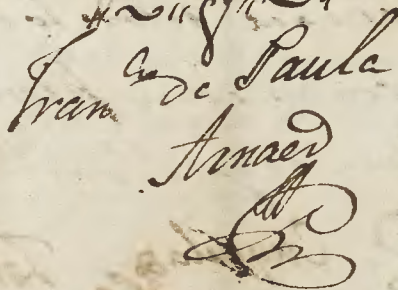 Fran.co de Paula
Arnaed